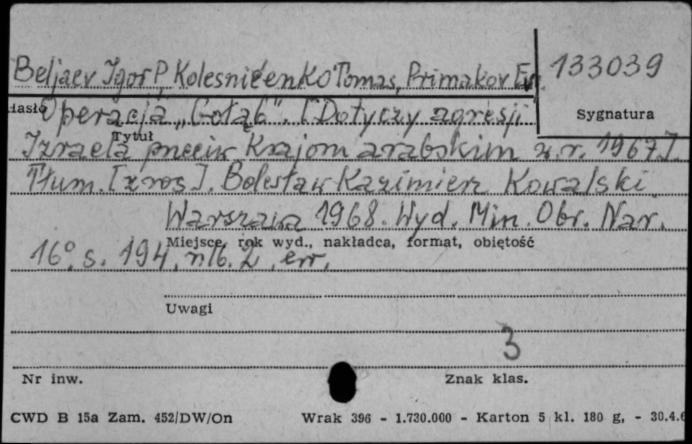 Beljaev Igor P, Kolesničenko Tomas, Primakov Ev. 133039
Hasło Operacja „Gołąb". [Dotyczy agresji Sygnatura
Tytuł
Izraela przeciw Krajom arabskim z r. 1967].
Tłum. [z ros]. Bolesław Kazimierz Kowalski
Warszawa 1968. Wyd. Min. Obr. Nar.
Miejsce, rok wyd., nakładca, format, objętość
16°, s. 194, nlb. 2, err.
Uwagi
3
Nr inw. Znak klas.
CWD B 15a Zam. 452/DW/On Wrak 396 - 1.730.000 - Karton 5 kl. 180 g. - 30.4.6